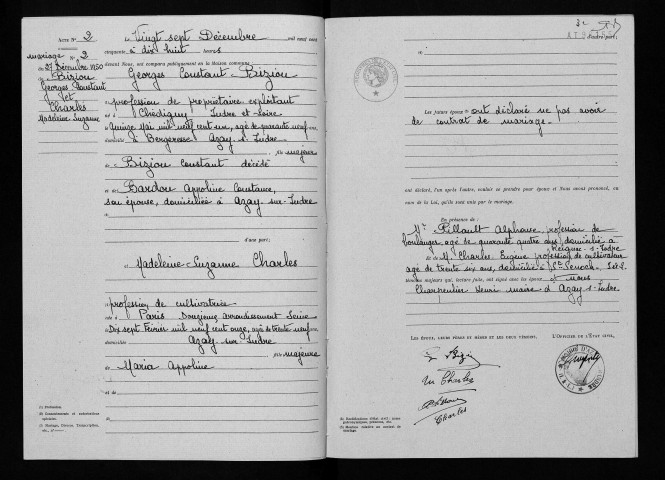 Acte N° 2
mariage N° 2
du 27 Décembre 1950
de Bizion
Georges Constant
et
Charles
Madeleine Suzanne
Le Vingt sept Décembre mil neuf cent
cinquante, à dix huit heures
devant Nous, ont comparu publiquement en la maison commune :
Georges Constant Bizion
profession de propriétaire exploitant
né à Chédigny Indre-et-Loire
le Quinze Mai mil neuf cent un, âgé de quarante neuf ans
domicilié à Bergeresse Azay-s-Indre
fils majeur
de Bizion Constant décédé
et de Bardou Appoline Constance,
son épouse, domiciliée à Azay-sur-Indre
d'une part;
et Madeleine-Suzanne Charles
profession de cultivatrice
née à Paris Douzième arrondissement Seine
le Dix sept Février mil neuf cent onze, âgée de trente neuf ans
domiciliée Azay-sur-Indre
fille majeure
de Maria Appoline
et de
(1) Profession.
d'autre part;
Les futurs époux ont déclaré ne pas avoir
de contrat de mariage.
ont déclaré, l'un après l'autre, vouloir se prendre pour époux et Nous avons prononcé, au
nom de la Loi, qu'ils sont unis par le mariage.
En présence de :
Mr Pillault Alphonse profession de
boulanger, âgé de quarante quatre ans, domicilié à
Reignac-s-Indre
et de Mr Charles Eugène profession de cultivateur
âgé de trente six ans, domicilié à St Senoch. I-et-L.
témoins majeurs qui, lecture faite, ont signé avec les époux et nous
Charpentier Henri maire d'Azay-s-Indre.
LES ÉPOUX, LEURS PÈRES ET MÈRES ET LES DEUX TÉMOINS,
L'OFFICIER DE L'ÉTAT CIVIL,
G Bizion
M Charles
Charles